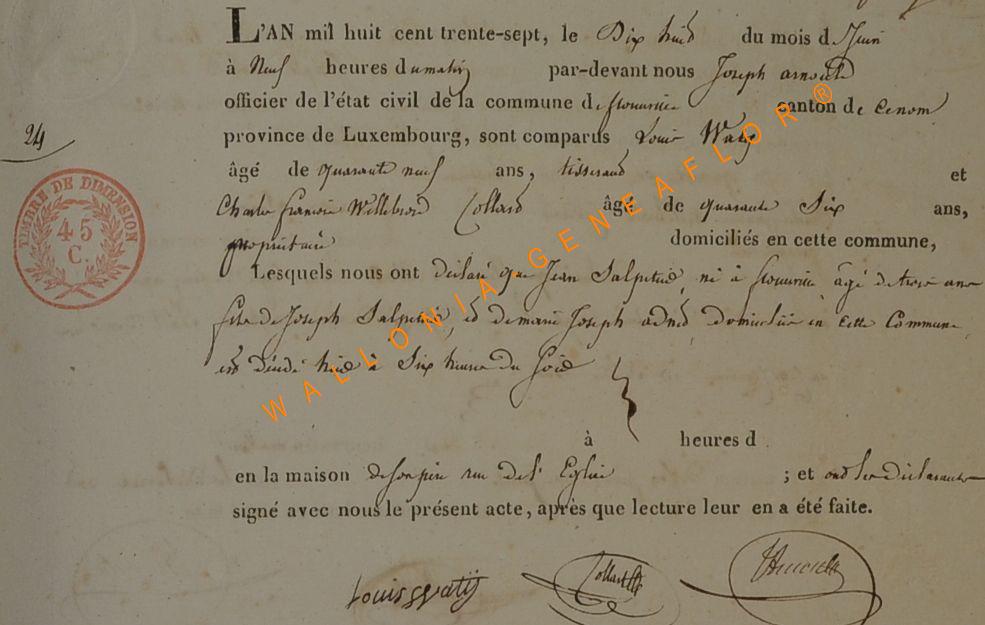 L'AN mil huit cent trente-sept, le Dix huit du mois d Juin
à Neuf heures du matin par-devant nous Joseph
officier de l'état civil de la commune de flouville canton de
province de Luxembourg, sont comparus Louis Waty
24
âgé de quarante neuf ans, tisserand et
Charles françois Willebrord Collard âgé de quarante Six ans,
propriétaire domiciliés en cette commune,
Lesquels nous ont déclaré que Jean Salpetié, né à âgé de trois ans
fils de Joseph Salpetié, et de marie Joseph domiciliés en cette Commune
est décédé hier à Six heures du Soir
à heures d
en la maison de son père rue de l'Eglise ; et ont les déclarants
signé avec nous le présent acte, après que lecture leur en a été faite.
Louis Watÿ Collard
TIMBRE DE DIMENSION
45
C.
WALLONIA-GENEAFLOR®